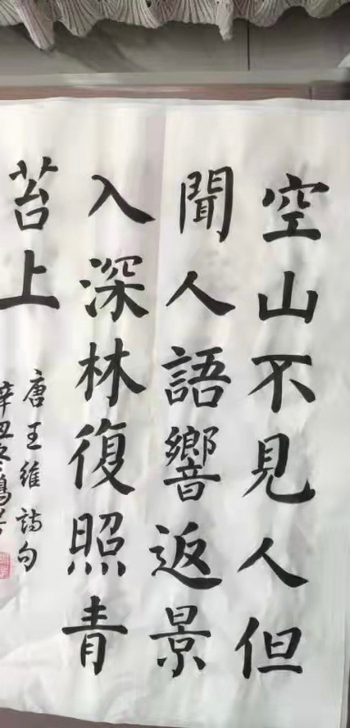 空山不見人但
聞人語響返景
入深林復照青
苔上
唐王維詩句
辛丑